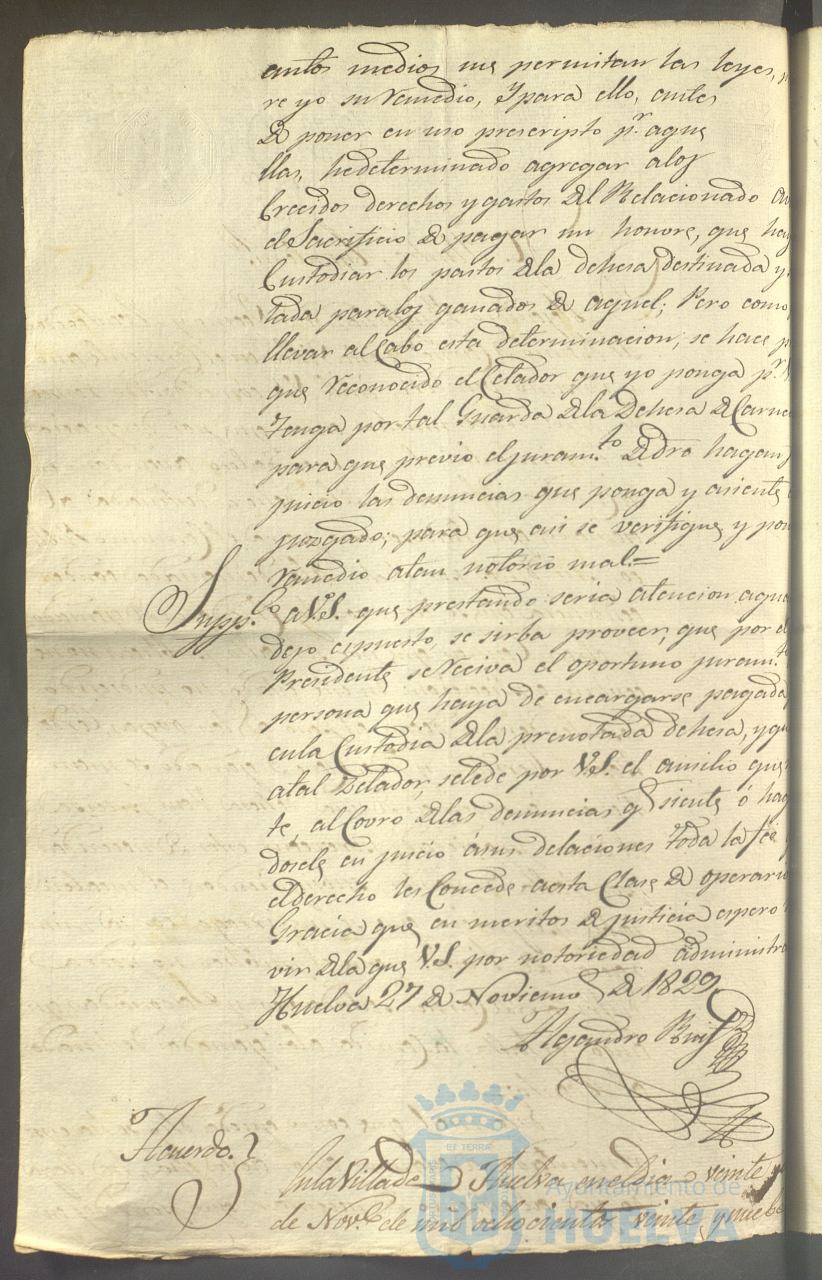 antos medios me permitan las leyes,
re yo su remedio, Y para ello, antes
de poner en uso prescripto pr. aque
llas, he determinado agregar a los
Crecidos derechos y gastos del Relacionado
el Sacrificio de pagar un honvre, que hay
Custodiar los pastos dela dehesa destinada y
tada para los ganados de aquel; Pero como
llevar al Cabo esta determinacion, se hace
que reconocido el Celador que yo ponga pr.
tenga por tal Guarda dela Dehesa de Carne
para que previo el juramto. de dro hagan
juicio las denuncias que ponga y asiente
juzgado; para que asi se verifique y pon
remedio atan notorio mal=
Suppco. a V.S. que prestando seria atencion aque
dejo espuesto se sirba proveer, que por el
Presidente se reciva el oportuno juramto.
persona que haya de encargarse pagada
cula Custodia dela prenotada dehesa, y qe
atal Zelador, sele de por V.S. el ausilio que
te, al Covro delas denuncias qe siente ó hag
dosele en juicio ásus delaciones toda la fée
el derecho les Concede aesta Clase de operario
Gracia que en meritos de justicia espero
vir dela que V.S. por notoriedad administra
Huelva 27 de Noviemе de 1829
Alejandro
Acuerdo.
En la Villa de Huelva en el dia veinte y
de Nove. de mil ochocientos veinte y nuebe
EX TERRÆ
Ayuntamiento de
HUELVA